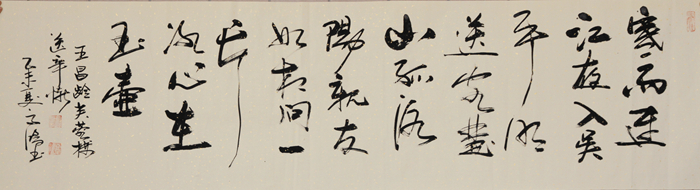 寒雨連
江夜入吴
平明
送客楚
山孤洛
陽親友
如相問一
片
冰心在
玉壺
王昌龄芙蓉樓
送辛漸
乙未夏